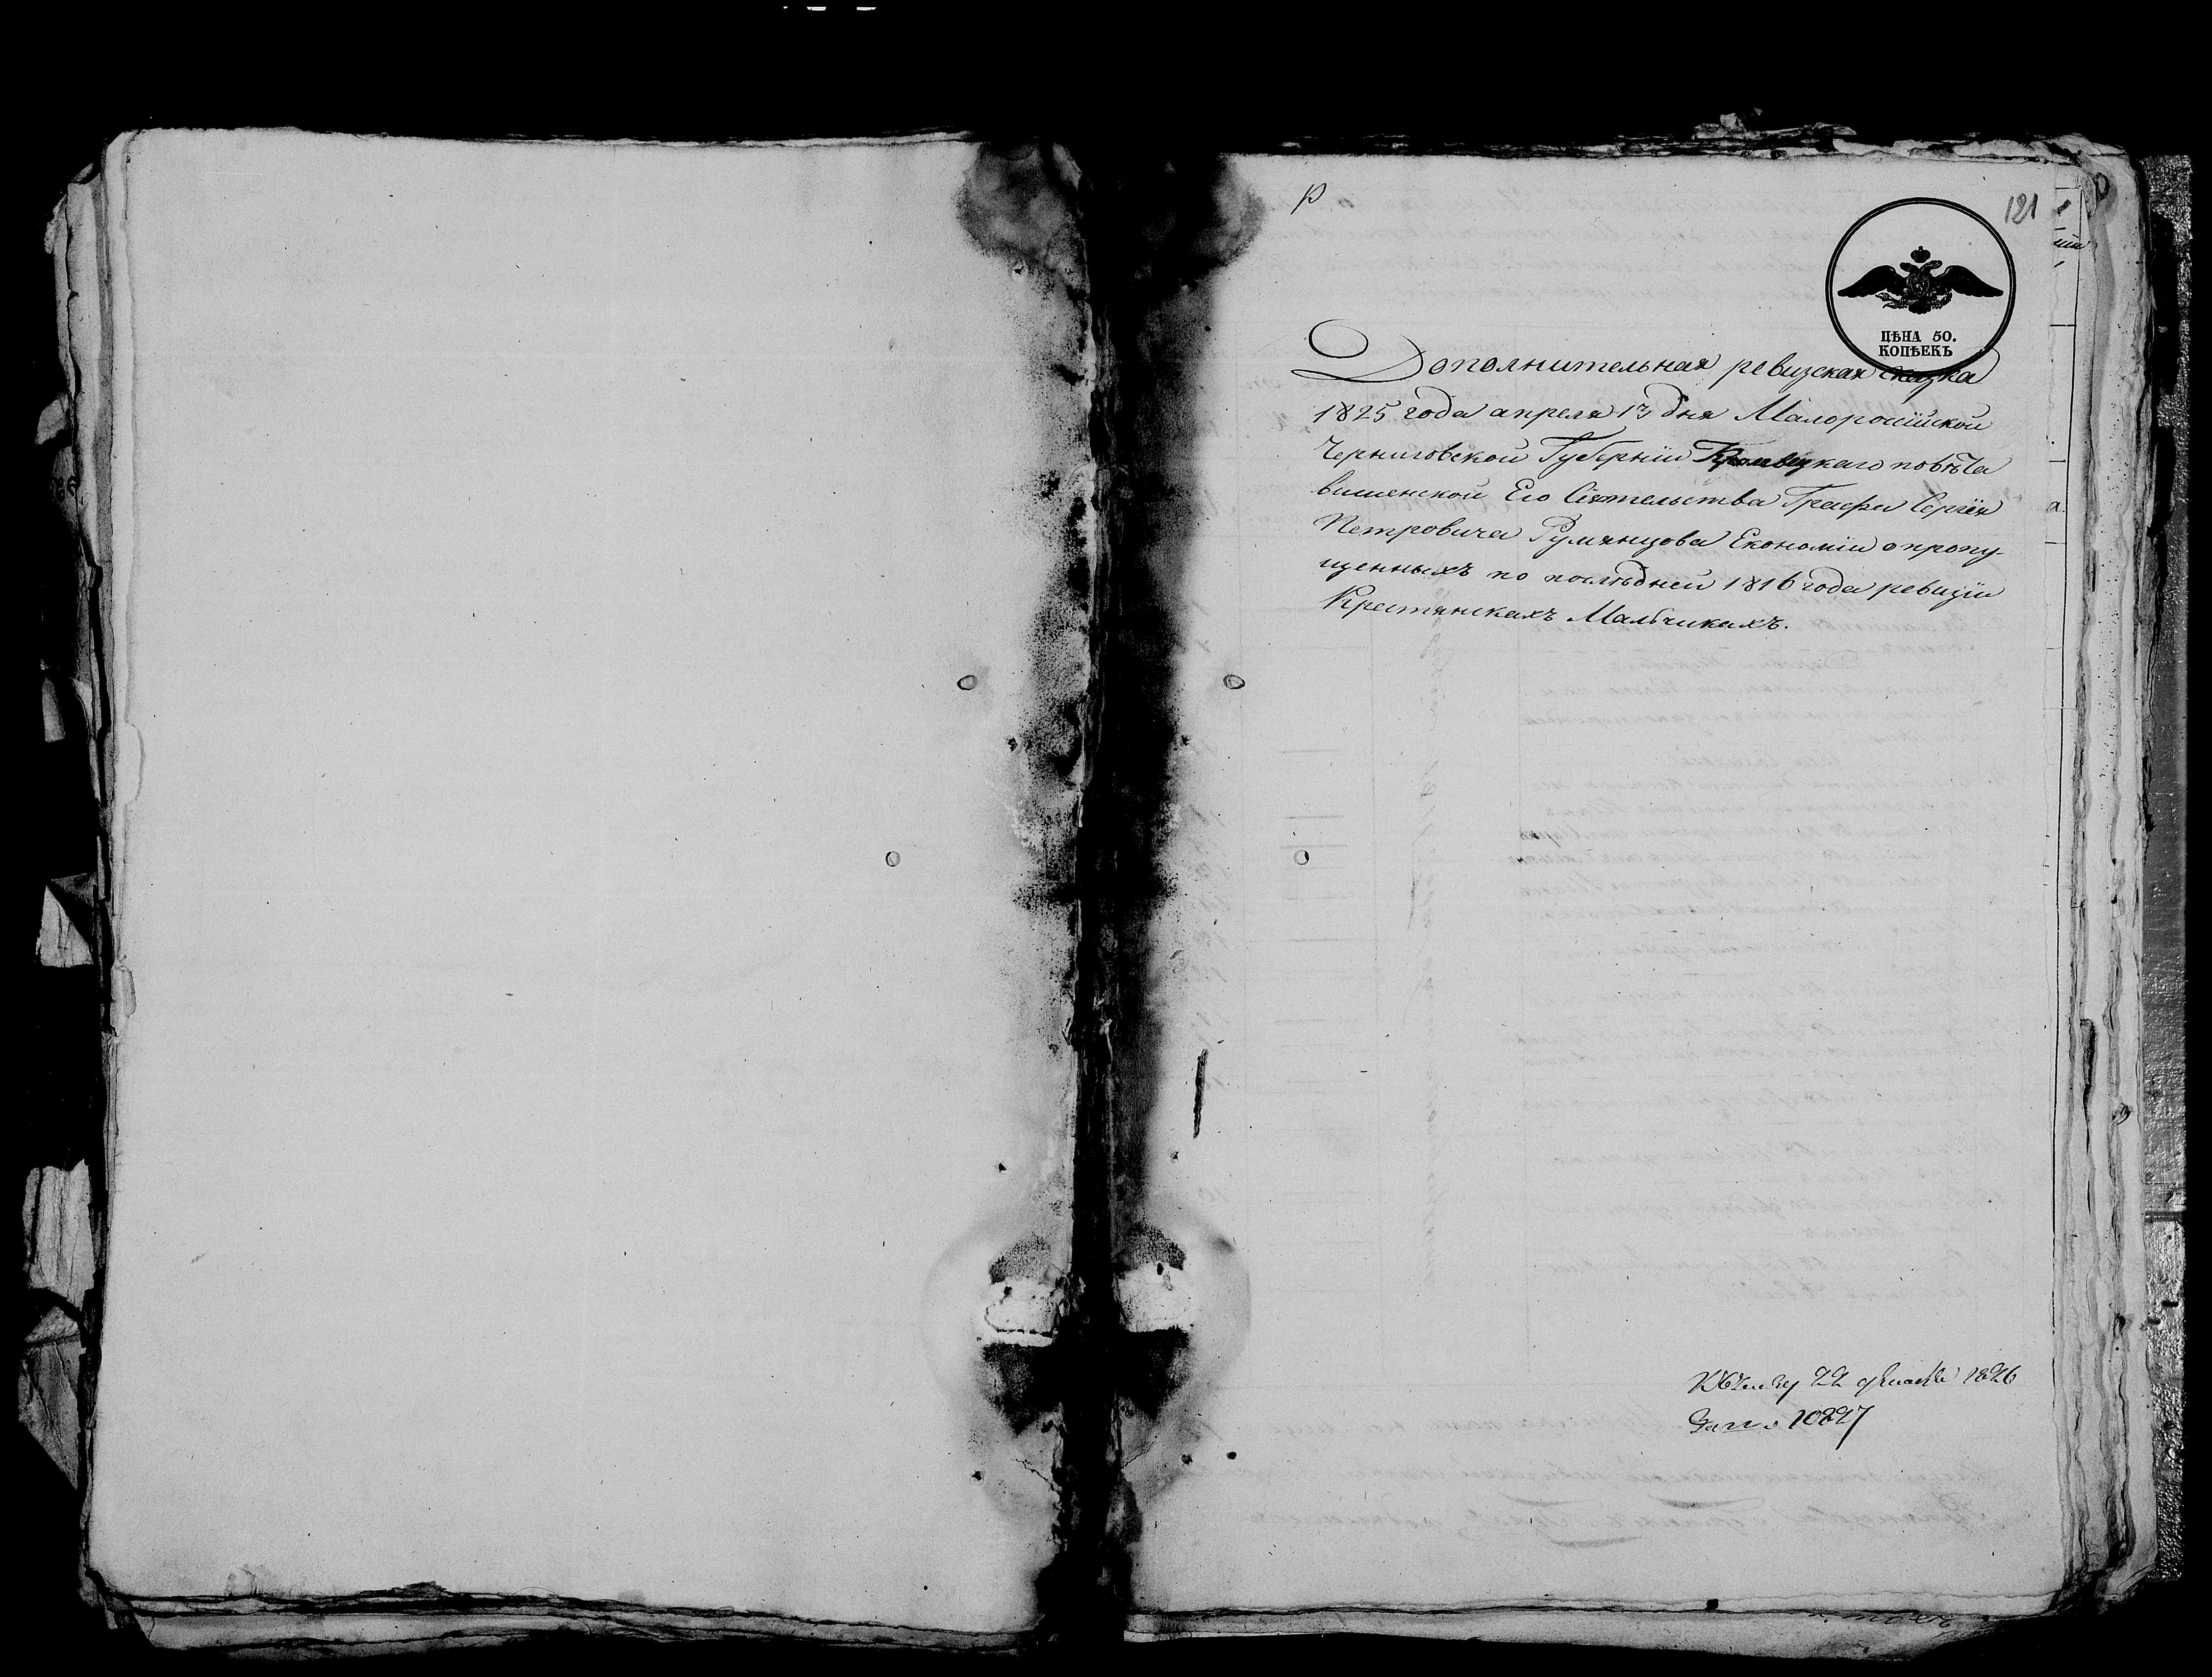 121
ЦѢНА 50.
КОПѢЕКЪ
Дополнительная ревизская сказка
1825 года апреля 13 дня Малоросійской
Черниговской Губерніи Кролевецкаго повѣта
вишенской Его Сіятельства Графа Сергѣя
Петровича Румянцова Економіи о пропу-
щенныхъ по послѣдней 1816 года ревизіи
Крестянскахъ Мальчикахъ.
22 1826
10827